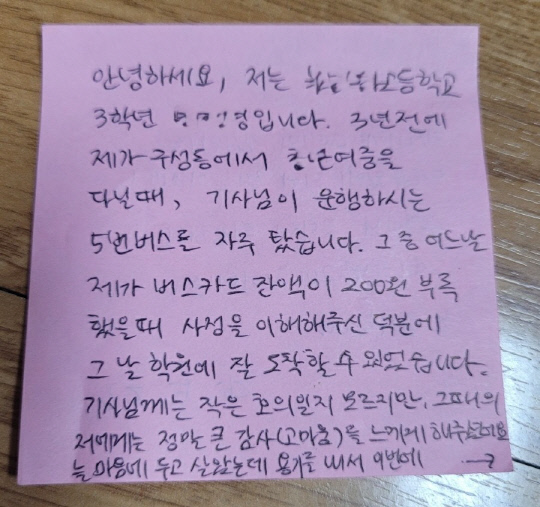 안녕하세요, 저는 고등학교
3학년 입니다. 3년전에
제가 구성동에서 여중을
다닐때, 기사님이 운행하시는
5번버스를 자주 탔습니다. 그 중 어느날
제가 버스카드 잔액이 200원 부족
했을때 사정을 이해해주신 덕분에
그 날 학원에 잘 도착할 수 있었습니다.
기사님께는 작은 호의일지 모르지만, 그때의
저에게는 정말 큰 감사(고마움)를 느끼게 해주셨어요
늘 마음에 두고 살았는데 용기를 내서 이번에 →